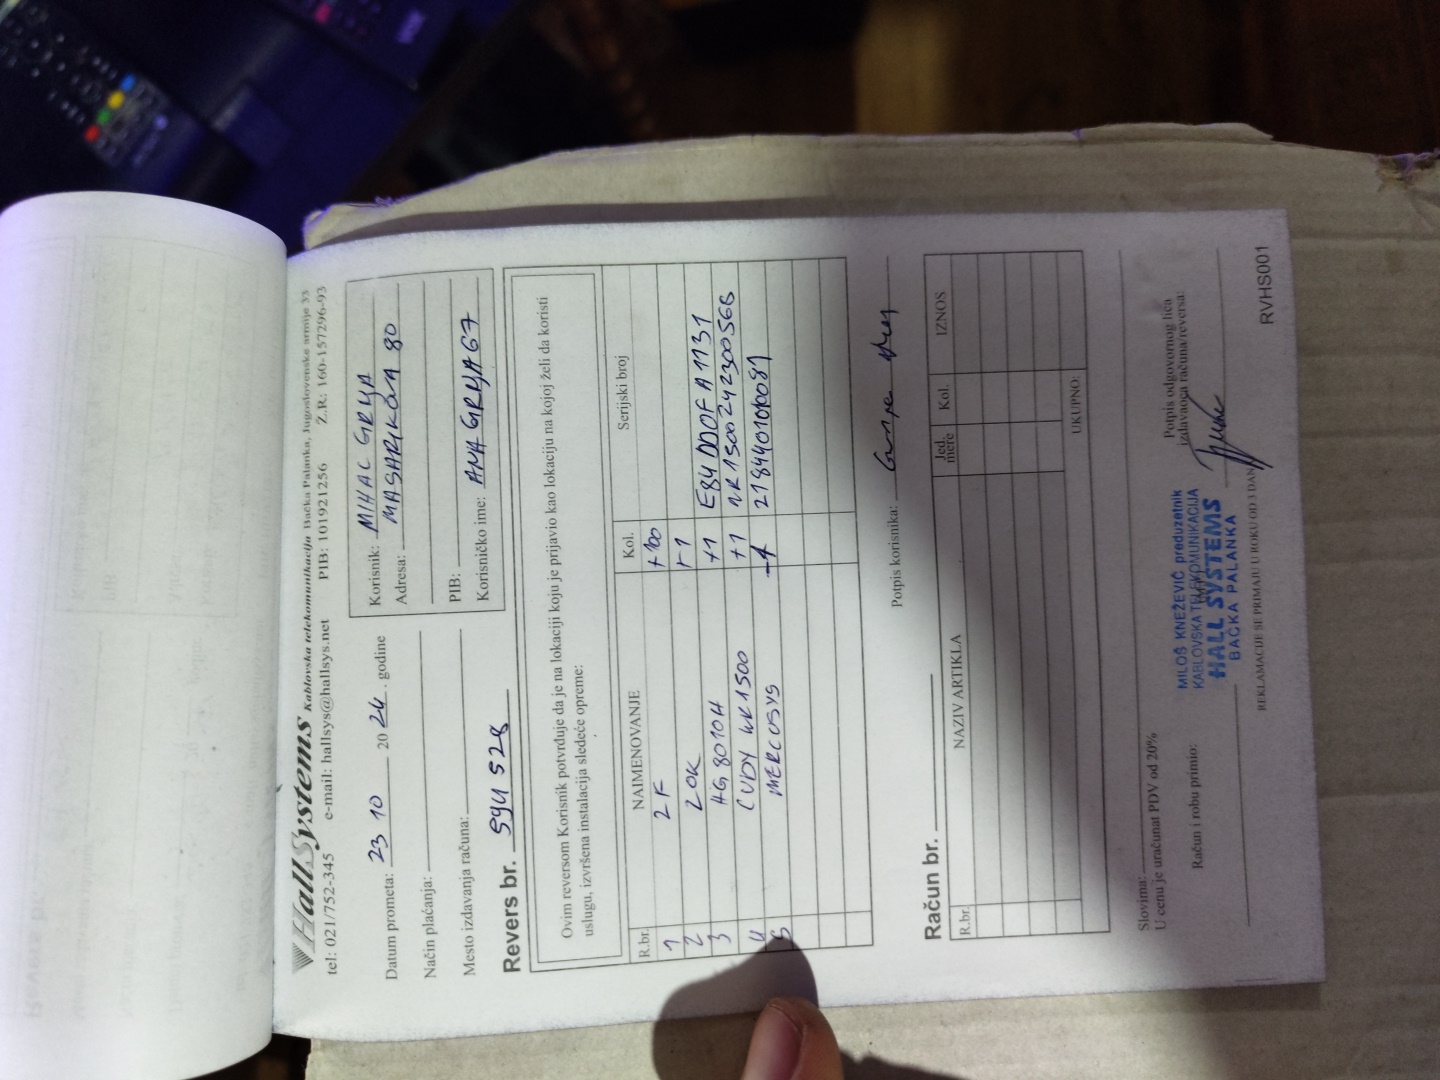 HallSystems Kablovska telekomunikacija Bačka Palanka, Jugoslovenske armije 33
tel: 021/752-345 e-mail: hallsys@hallsys.net PIB: 101921256 Ž.R: 160-157296-93
Datum prometa: 23 10 20 24. godine
Način plaćanja:
Mesto izdavanja računa:
Korisnik: MIHAL GRNJA
Adresa: MASARIKOVA 80
PIB:
Korisničko ime: ANA GRNJA 67
Revers br. 594 528
Ovim reversom Korisnik potvrđuje da je na lokaciji koju je prijavio kao lokaciju na kojoj želi da koristi
uslugu, izvršena instalacija sledeće opreme:
R.br. NAIMENOVANJE Kol. Serijski broj
1 2K +100
2 20K +1
3 HG8010H +1 E84DD0FA1131
4 CUDY WR1500 +1 WR1500242300566
5 MERCUSYS -1
Potpis korisnika:
Račun br.
R.br. NAZIV ARTIKLA Jed. mere Kol. IZNOS
UKUPNO:
Slovima:
U cenu je uračunat PDV od 20%
Račun i robu primio:
MILOŠ KNEŽEVIĆ preduzetnik
KABLOVSKA TELEKOMUNIKACIJA
HALL SYSTEMS
BAČKA PALANKA
Potpis odgovornog lica
izdavaoca računa/reversa:
REKLAMACIJE SE PRIMAJU U ROKU OD 3 DANA
RVHS001